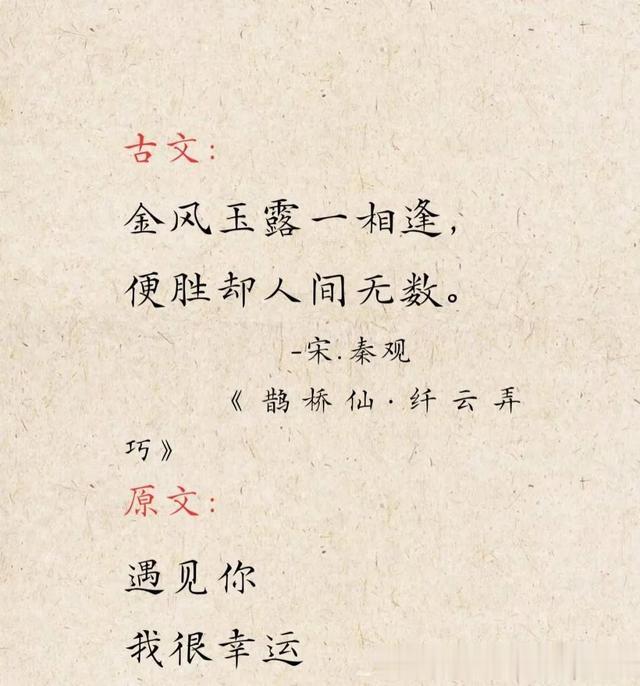 古文：
金风玉露一相逢，
便胜却人间无数。
-宋.秦观
《鹊桥仙·纤云弄
巧》
原文：
遇见你
我很幸运